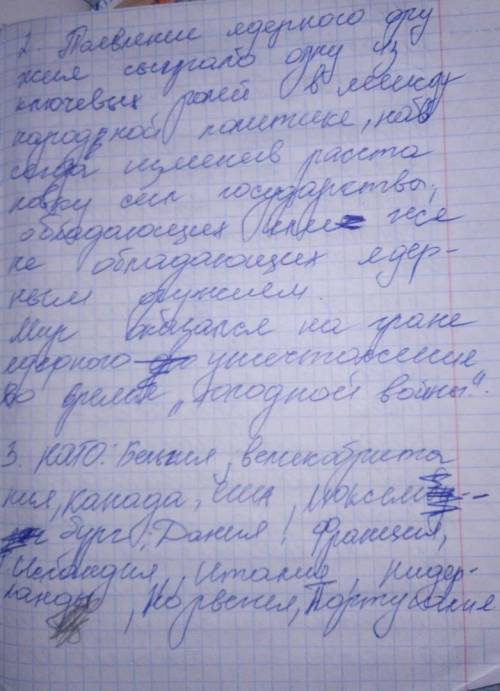 2. Появление ядерного ору
жия сыграло одну из
ключевых ролей в между
народной политике, навс
сегда изменив расста
новку сил государствы,
обладающих или же
не обладающих ядер-
ным оружием.
Мир оказался на гране
ядерного уничтожения
во время "холодной войны".
3. НАТО: Бельгия, великобрита
ния, Канада, США, Люксем-
бург, Дания, Франция,
Исландия, Италия, Нидер-
ланды, Норвегия, Португалия